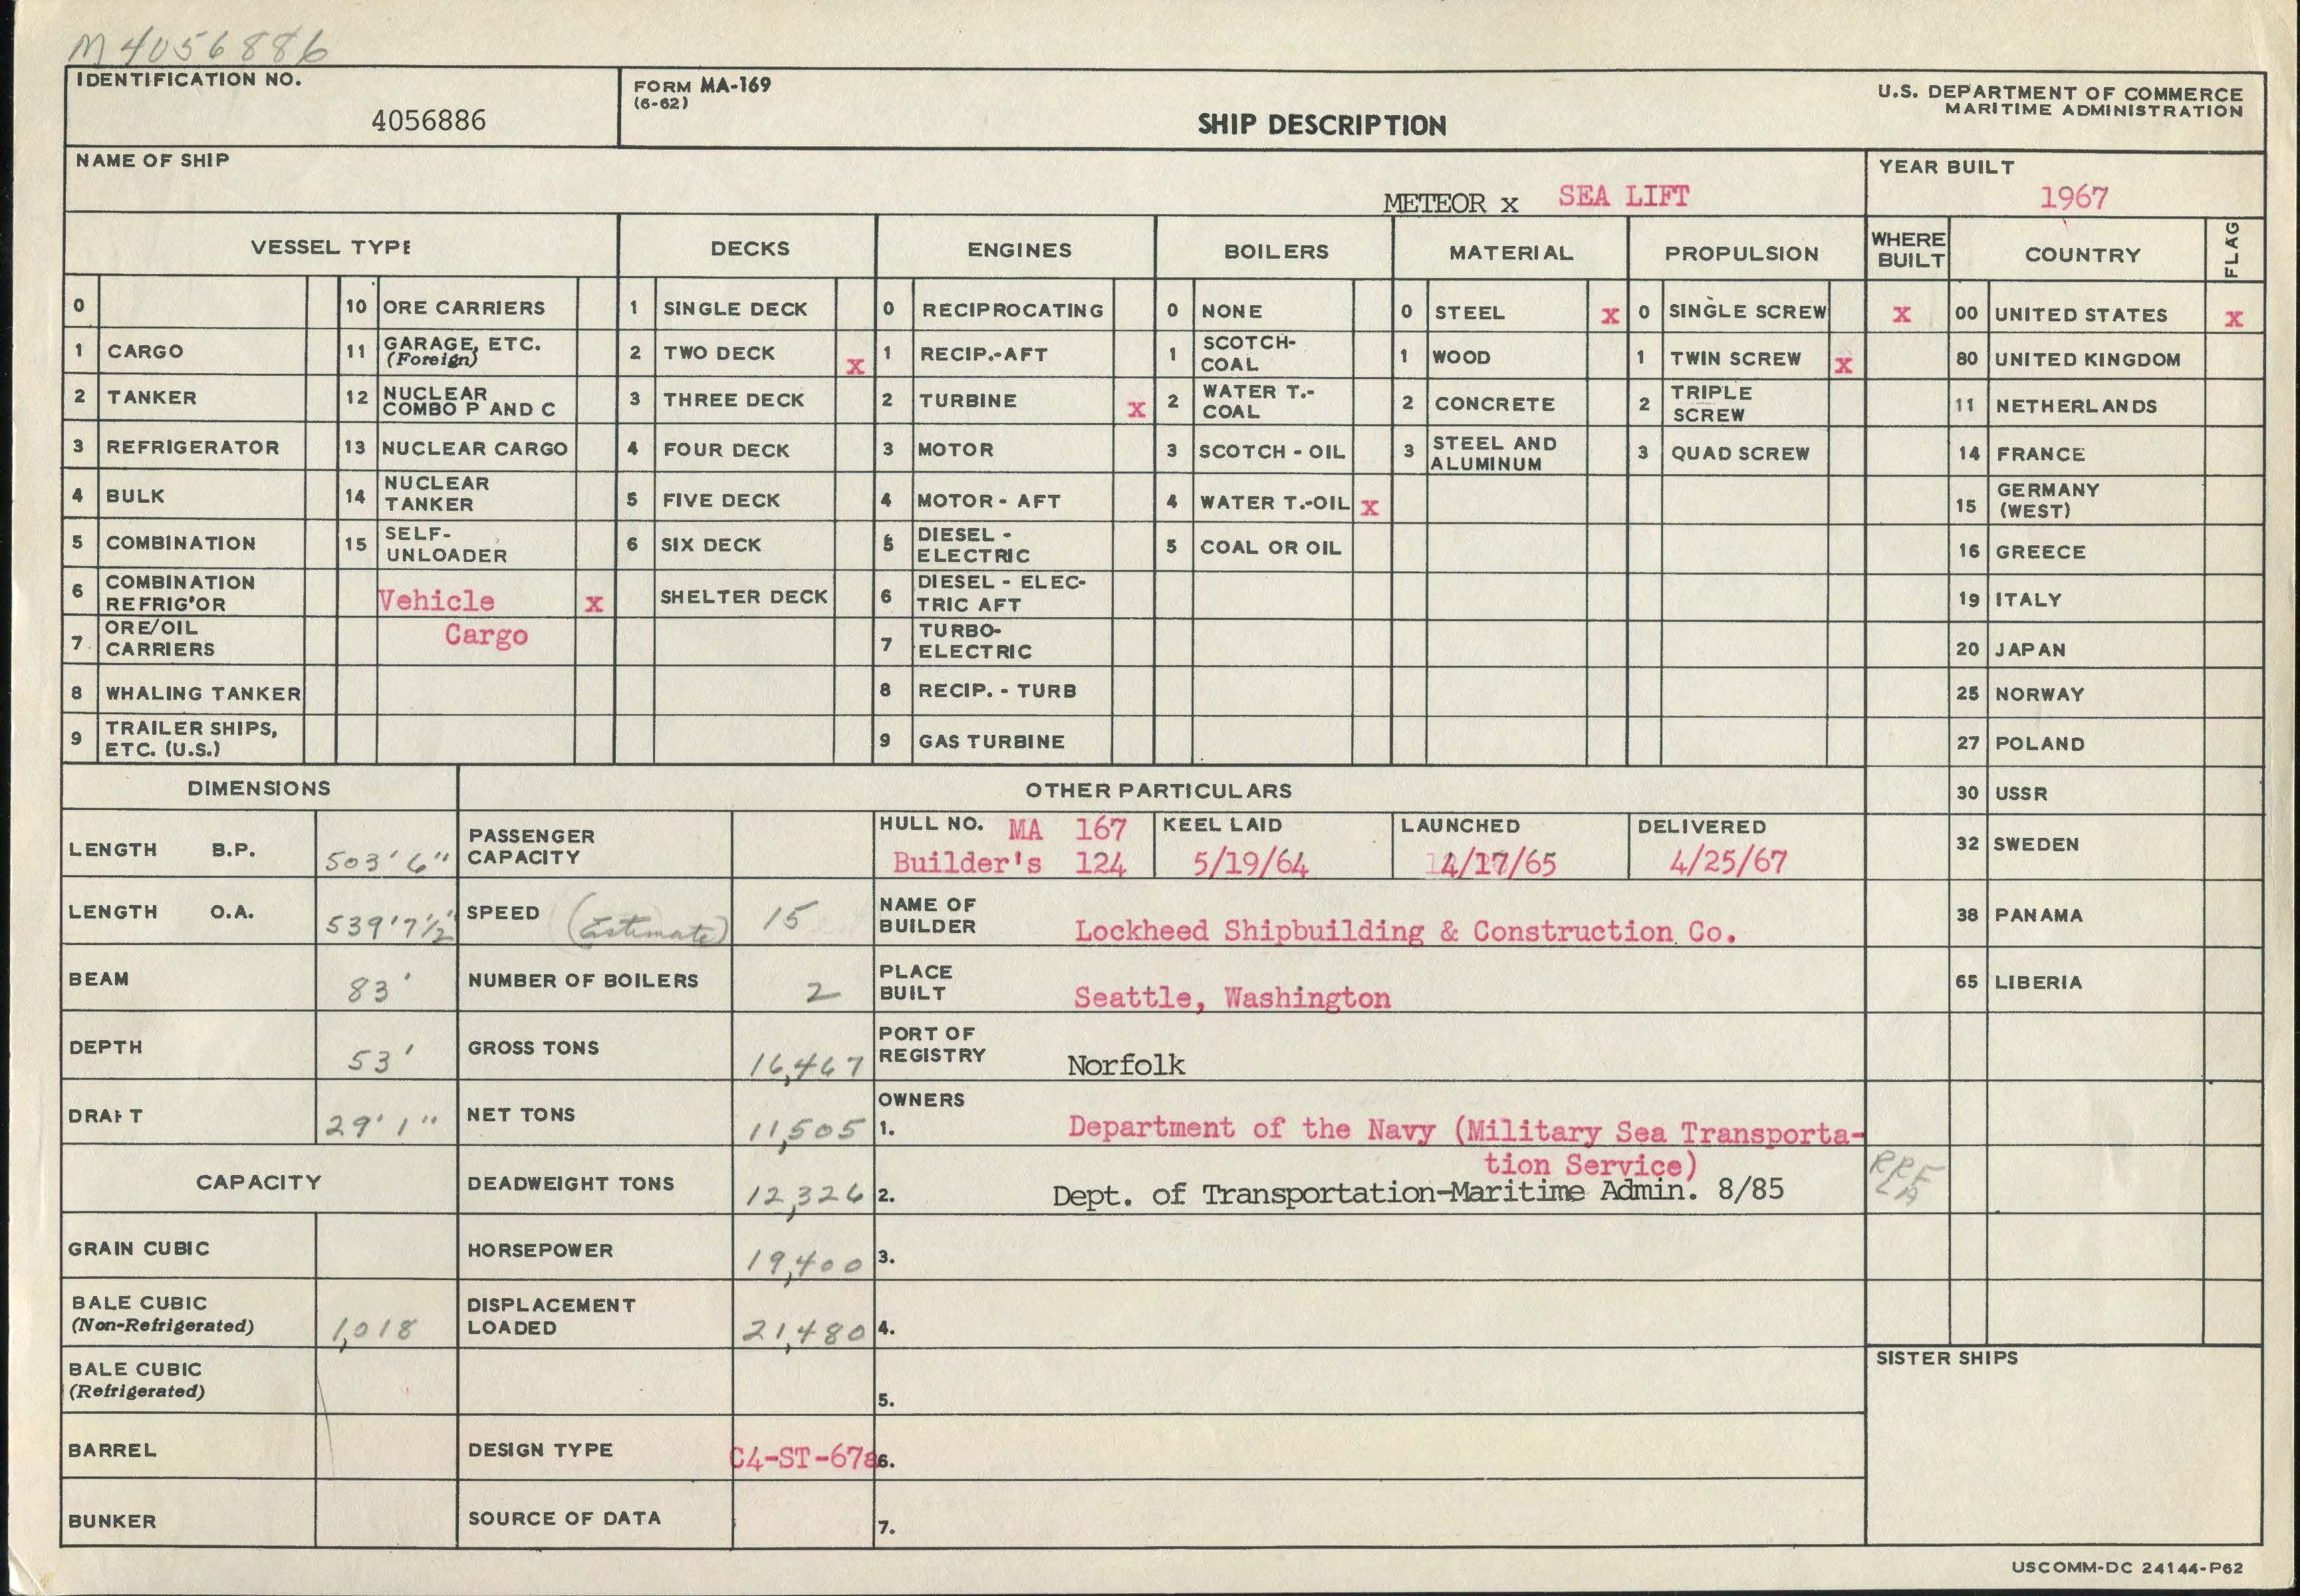 M4056886
IDENTIFICATION NO.
4056886
FORM MA-169
(6-62)
SHIP DESCRIPTION
U.S. DEPARTMENT OF COMMERCE
MARITIME ADMINISTRATION
NAME OF SHIP
METEOR x SEA LIFT
YEAR BUILT
1967
VESSEL TYPE DECKS ENGINES BOILERS MATERIAL PROPULSION WHERE BUILT COUNTRY FLAG
0 10 ORE CARRIERS 1 SINGLE DECK 0 RECIPROCATING 0 NONE 0 STEEL x 0 SINGLE SCREW x 00 UNITED STATES x
1 CARGO 11 GARAGE, ETC. (Foreign) 2 TWO DECK x 1 RECIP.-AFT 1 SCOTCH-COAL 1 WOOD 1 TWIN SCREW x 80 UNITED KINGDOM
2 TANKER 12 NUCLEAR COMBO P AND C 3 THREE DECK 2 TURBINE x 2 WATER T.-COAL 2 CONCRETE 2 TRIPLE SCREW 11 NETHERLANDS
3 REFRIGERATOR 13 NUCLEAR CARGO 4 FOUR DECK 3 MOTOR 3 SCOTCH - OIL 3 STEEL AND ALUMINUM 3 QUAD SCREW 14 FRANCE
4 BULK 14 NUCLEAR TANKER 5 FIVE DECK 4 MOTOR - AFT 4 WATER T.-OIL x 15 GERMANY (WEST)
5 COMBINATION 15 SELF-UNLOADER 6 SIX DECK 5 DIESEL - ELECTRIC 5 COAL OR OIL 16 GREECE
6 COMBINATION REFRIG'OR Vehicle x SHELTER DECK 6 DIESEL - ELECTRIC AFT 19 ITALY
7 ORE/OIL CARRIERS Cargo 7 TURBO-ELECTRIC 20 JAPAN
8 WHALING TANKER 8 RECIP. - TURB 25 NORWAY
9 TRAILER SHIPS, ETC. (U.S.) 9 GAS TURBINE 27 POLAND
DIMENSIONS OTHER PARTICULARS 30 USSR
LENGTH B.P. 503'6" PASSENGER CAPACITY HULL NO. MA 167 KEEL LAID LAUNCHED DELIVERED 32 SWEDEN
Builder's 124 5/19/64 4/17/65 4/25/67
LENGTH O.A. 539'7½" SPEED (Estimate) 15 NAME OF BUILDER Lockheed Shipbuilding & Construction Co. 38 PANAMA
BEAM 83' NUMBER OF BOILERS 2 PLACE BUILT Seattle, Washington 65 LIBERIA
DEPTH 53' GROSS TONS 16,467 PORT OF REGISTRY Norfolk
DRAFT 29'1" NET TONS 11,505 OWNERS
1. Department of the Navy (Military Sea Transporta-
tion Service)
CAPACITY DEADWEIGHT TONS 12,326 2. Dept. of Transportation-Maritime Admin. 8/85
GRAIN CUBIC HORSEPOWER 19,400 3.
BALE CUBIC (Non-Refrigerated) 1,018 DISPLACEMENT LOADED 21,480 4.
BALE CUBIC (Refrigerated) 5.
SISTER SHIPS
BARREL DESIGN TYPE C4-ST-67a 6.
BUNKER SOURCE OF DATA 7.
USCOMM-DC 24144-P62